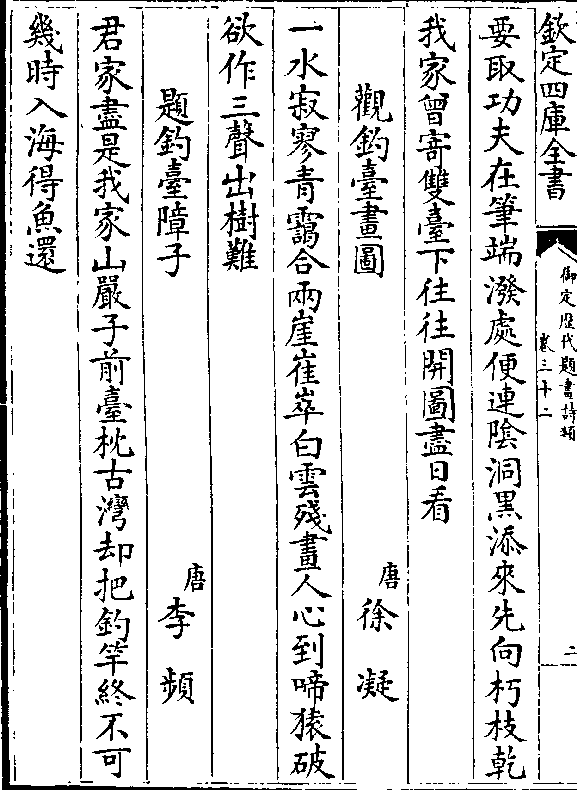 欽定四庫全書
御定歴代題畫詩類
卷三十二
二
要取功夫在筆端潑處便連陰洞黑添來先向朽枝乾
我家曾寄雙臺下往往開圖盡日看
觀釣臺畫圖
唐徐凝
一水寂寥青靄合兩崖崔崒白雲殘畫人心到啼猿破
欲作三聲出樹難
題釣臺障子
唐李頻
君家盡是我家山嚴子前臺枕古灣却把釣竿終不可
幾時入海得魚還